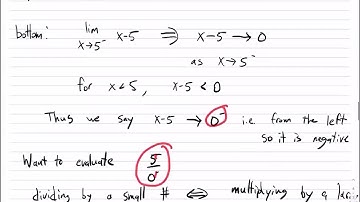 bottom: lim x-5 ⇒ x-5 → 0
x→5⁻ as x→5⁻
for x<5, x-5 < 0
Thus we say x-5 → 0⁻ i.e. from the left
so it is negative
Want to evaluate 5/0⁻
dividing by a small # ⇔ multiplying by a